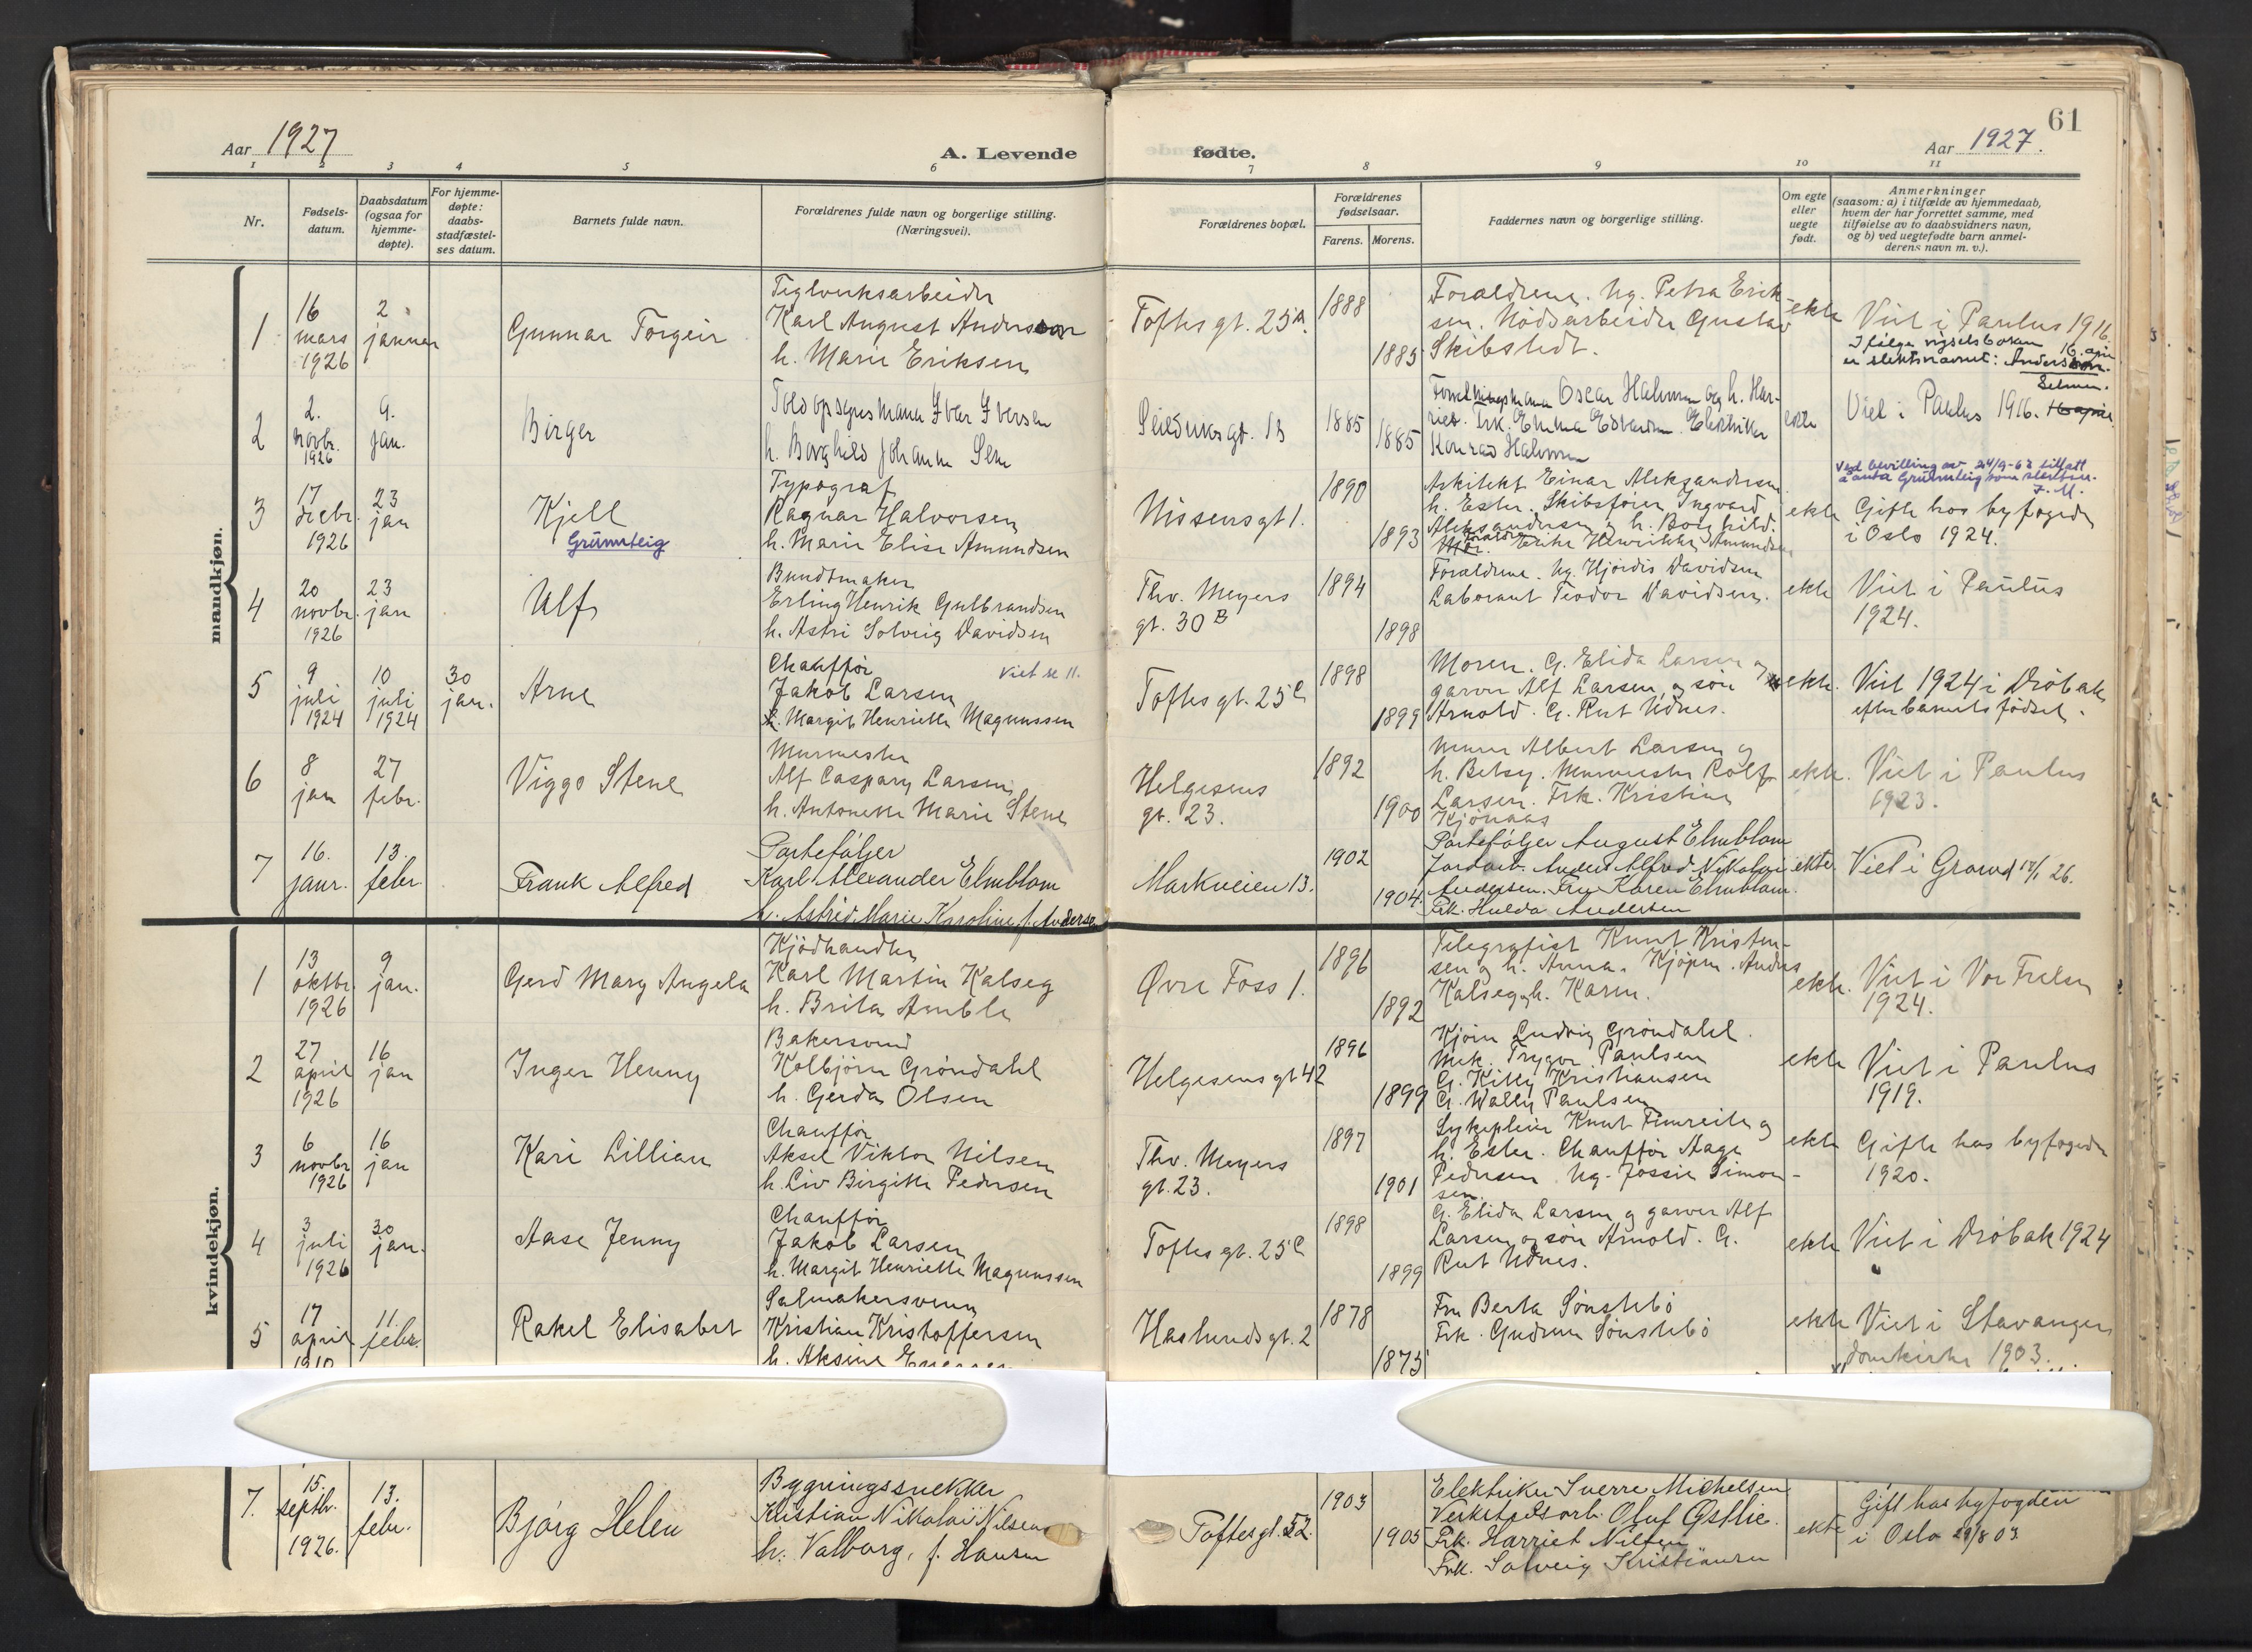 Aar 1927
A. Levende
1 2 3 4 5 6
Nr.
Fødsels-
datum.
Daabsdatum
(ogsaa for
hjemme-
døpte).
For hjemme-
døpte:
daabs-
stadfæstel-
ses datum.
Barnets fulde navn.
Forældrenes fulde navn og borgerlige stilling.
(Næringsvei).
mandkjøn.
1
16
mars
1926
2
januar
Gunnar Torgeir
Teglverksarbeider
Karl August Andersson
h. Marie Eriksen
2
2.
novbr.
1926
9.
jan.
Birger
Toldopsynsmann Iver Iversen
h. Borghild Johanne
3
17
decbr.
1926
23
jan
Kjell
Grünsteig
Typograf
Ragnar Halvorsen
h. Marie Elise Amundsen
4
20
novbr.
1926
23
jan
Ulf
Buntmaker
Erling Henrik Gulbrandsen
h. Astri Solveig Davidsen
5
9
juli
1924
10
juli
1924
30
jan.
Arne
Chauffør
Viet se 11.
Jakob Larsen
h. Margit Henriette Magnussen
6
8
jan
27
febr.
Viggo Stene
Murmester
Alf Caspary Larsen
h. Antonette Marie Stene
7
16.
janr.
13.
febr.
Frank Alfred
Porteføljer
Karl Alexander Elmblom
h. Astrid Marie Karoline f. Anderse
kvindekjøn.
1
13
oktbr.
1926
9
jan.
Gerd Mary Angela
Kjødhandler
Karl Martin Kalseg
h. Brita Amble
2
27
april
1926
16
jan
Inger Henny
Bakersvend
Kolbjörn Gröndahl
h. Gerda Olsen
3
6
novbr
1926
16
jan
Kari Lillian
Chauffør
Aksel Viktor Nilsen
h. Liv Birgitte Pedersen
4
3
juli
1926
30
jan.
Aase Jenny
Chauffør
Jakob Larsen
h. Margit Henriette Magnussen
5
17
april
1910
11.
febr.
Rakel Elisabet
Salmakersvenn
Kristian Kristoffersen
h. Aksine
7.
15.
septbr.
1926.
13.
febr.
Bjørg Helen
Bygningssnekker
Kristian Nikolai Nilsen
h. Valborg, f. Hansen
61
fødte.
Aar 1927.
7 8 9 10 11
Forældrenes bopæl.
Forældrenes
fødselsaar.
Farens. Morens.
Faddernes navn og borgerlige stilling.
Om egte
eller
uegte
født.
Anmerkninger
(saasom: a) i tilfælde av hjemmedaab,
hvem der har forrettet samme, med
tilføielse av to daabsvidners navn,
og b) ved uegtefødte barn anmel-
derens navn m. v.).
Toftes gt. 25 A.
1888
1885
Forældrene. Ug. Petra Erik-
sen. Nödsarbeider Gustav
Skibstedt.
ekte
Viet i Paulus 1916.
Ifølge vigselsboken 16. april
er slektsnavnet: Andersson.
Seilduksgt. 13
1885
1885
Oscar Halvorsen og h. Har-
riet. Frk. Emma Edvardsen. Elektriker
Konrad Halvorsen
ekte
Viet i Paulus 1916. 16 april
Nissensgt 1.
1890
1893
Arkitekt Einar Aleksandersen
h. Ester. Skibsfører Ingvard
Aleksandersen og h. Borghild.
Erikke Henrikke Amundsen
ekte
Ved bevilling av 24/9-62 tillatt
å anta Grünsteig som slektsn.
Gifte hos byfogden
i Oslo 1924.
Thv. Meyers
gt. 30 B
1894
1898
Forældrene. Ug. Hjördis Davidsen
Laborant Teodor Davidsen.
ekte
Viet i Paulus
1924.
Toftes gt. 25 C
1898
1899
Moren. G. Elida Larsen og
garver Alf Larsen, og søn
Arnold. G. Rut Udnes.
ekte.
Viet 1924 i Dröbak
efter barnets fødsel.
Helgesens
gt. 23.
1892
1900
Murer Albert Larsen og
h. Betsy. Murmester Rolf
Larsen. Frk. Kristine
Kjönaas
ekte.
Viet i Paulus
1923.
Markveien 13.
1902
1904.
Porteføljer August Elmblom
Jordarb. Anders Alfred Nikolai
Andersen. Fru Karen Elmblom.
Frk. Hulda Andersen
ekte.
Viet i Grorud 17/1 26.
Øvre Foss 1.
1896
1892
Telegrafist Knut Kristen-
sen og h. Anna. Kjöpm. Anders
Kalseg og h. Karen.
ekte.
Viet i Vor Frelser
1924.
Helgesens gt 42
1896
1899
Kjörer Ludvig Gröndahl.
Mek. Trygve Paulsen
G. Kitty Kristiansen
G. Wally Paulsen
ekte
Viet i Paulus
1919.
Thv. Meyers
gt. 23.
1897
1901
Sykepleier Knut Timreite og
h. Ester. Chauffør Aage
Pedersen. Ug. Jossie Simon-
sen.
ekte
Gifte hos byfogden
1920.
Toftes gt. 25 C
1898
1899
G. Elida Larsen og garver Alf
Larsen og søn Arnold. G.
Rut Udnes.
ekte
Viet i Dröbak 1924
Haslundsgt. 2
1878
1875
Fru Berta Sönstebö
Frk. Gudrun Sönstebö
ekte
Viet i Stavanger
domkirke 1903.
Toftesgt. 52.
1903
1905
Elektriker Sverre Michelsen
Verkstedsarb. Oluf Østlie.
Frk. Harriet Nilsen
Frk. Solveig Kristiansen
ekte
Gift hos byfogden
i Oslo